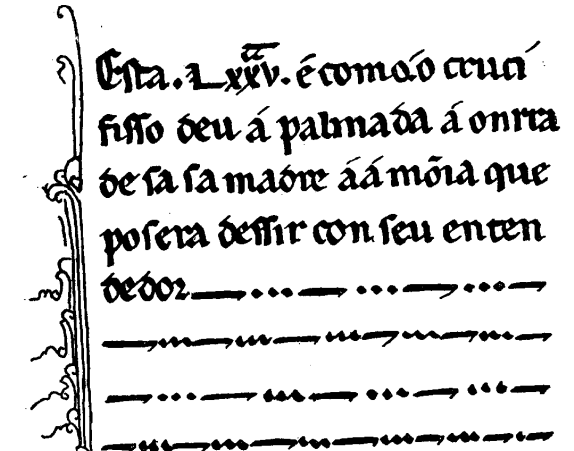 Esta. Lxxv. é comoo cruci
fisso deu á palmada á onrra
de sa sa madre áá mõia que
posera dessir con seu enten
dedor